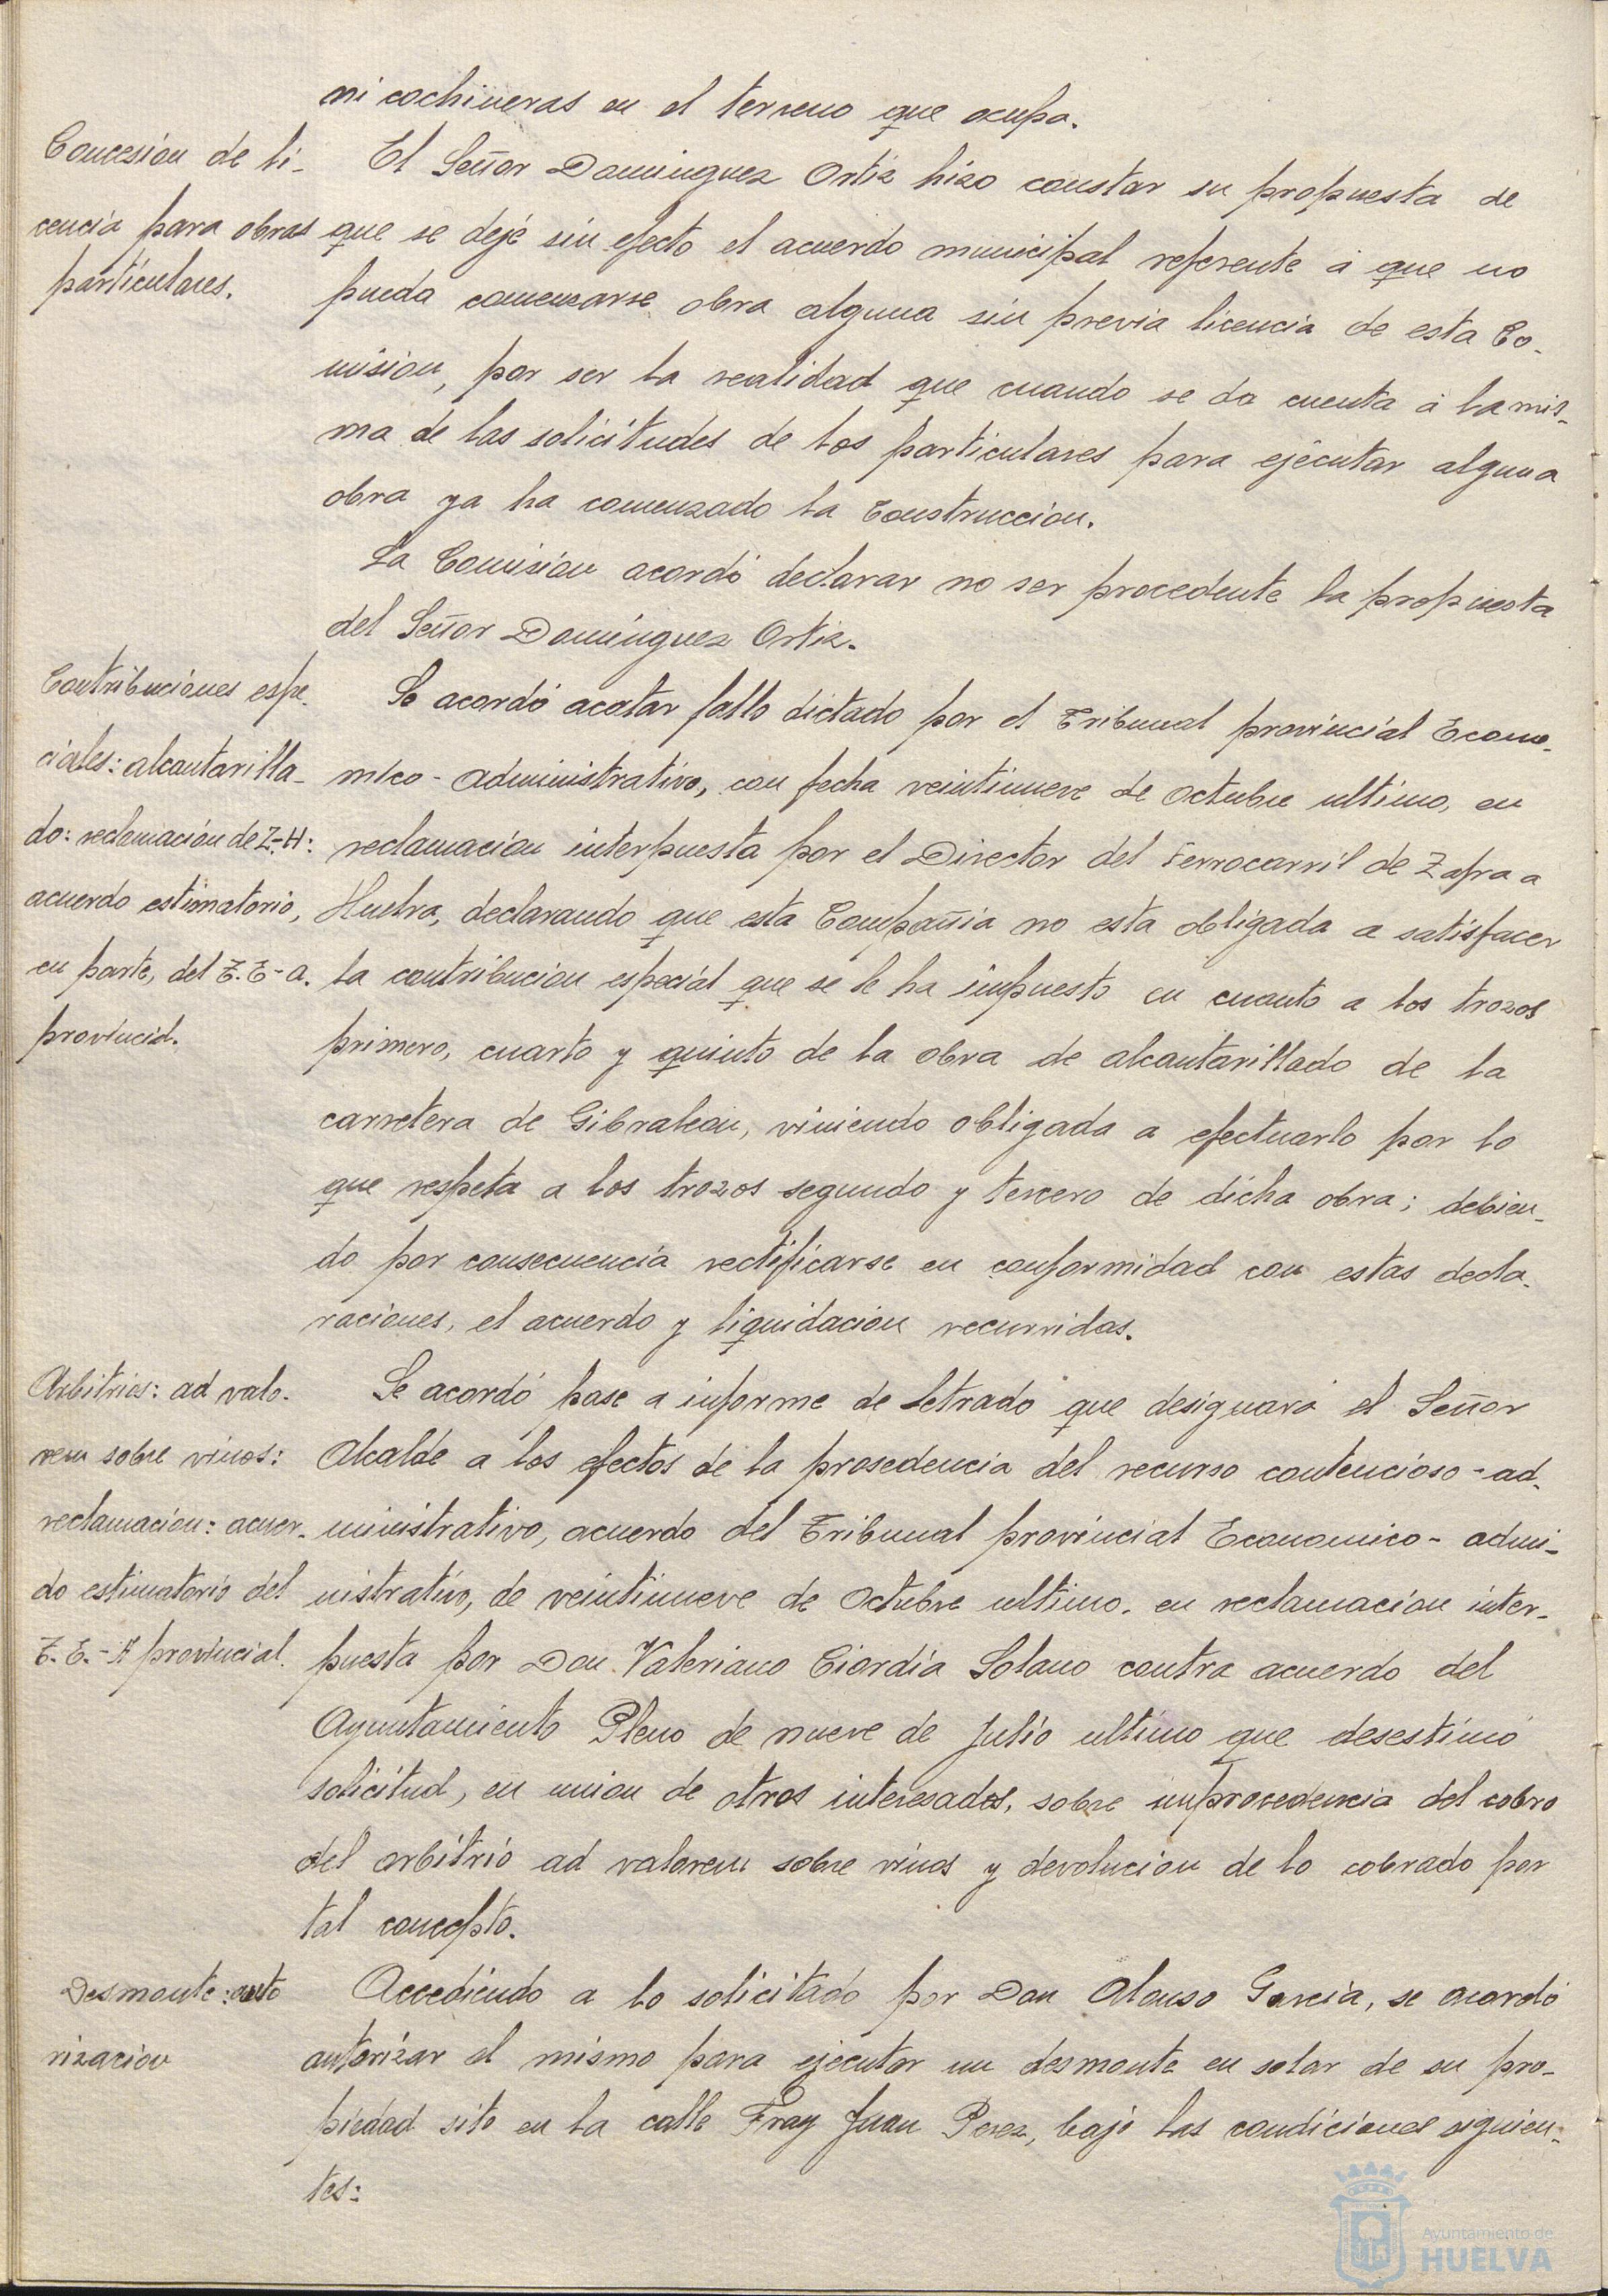 ni cochineras en el terreno que ocupa.
Concesion de li-
cencia para obras
particulares.
El Señor Dominguez Ortiz hizo constar su propuesta de
que se deje sin efecto el acuerdo municipal referente á que no
pueda comenzarse obra alguna sin previa licencia de esta Co-
mision, por ser la realidad que cuando se da cuenta á la mis-
ma de las solicitudes de los particulares para ejecutar alguna
obra ya ha comenzado la construccion.
La Comision acordó declarar no ser procedente la propuesta
del Señor Dominguez Ortiz.
Contribuciones espe-
ciales: alcantarilla-
do: reclamación de Z-H:
acuerdo estimatorio,
en parte, del T. E-a.
provincial.
Se acordó acatar fallo dictado por el Tribunal provincial Econo-
mico-administrativo, con fecha veintinueve de octubre ultimo, en
reclamacion interpuesta por el Director del Ferrocarril de Zafra a
Huelva, declarando que esta Compañia no esta obligada a satisfacer
la contribucion especial que se le ha impuesto en cuanto a los trozos
primero, cuarto y quinto de la obra de alcantarillado de la
carretera de Gibraleon, viniendo obligada a efectuarlo por lo
que respeta a los trozos segundo y tercero de dicha obra; debien-
do por consecuencia rectificarse en conformidad con estas decla-
raciones, el acuerdo y liquidacion recurridas.
Arbitrios: ad valo-
rem sobre vinos:
reclamacion: acuer-
do estimatorio del
T. E.-A provincial.
Se acordó pase a informe de Letrado que designará el Señor
Alcalde a los efectos de la procedencia del recurso contencioso-ad-
ministrativo, acuerdo del Tribunal provincial Economico-admi-
nistrativo, de veintinueve de Octubre ultimo, en reclamacion inter-
puesta por Don Valeriano Ciordia Solano contra acuerdo del
Ayuntamiento Pleno de nueve de Julio ultimo que desestimó
solicitud, en union de otros interesados, sobre improcedencia del cobro
del arbitrio ad valorem sobre vinos y devolucion de lo cobrado por
tal concepto.
Desmonte: auto
rizacion
Accediendo a lo solicitado por Don Alonso Garcia, se acordó
autorizar el mismo para ejecutar un desmonte en solar de su pro-
piedad sito en la calle Fray Juan Perez, bajo las condiciones siguien-
tes:
Ayuntamiento de
HUELVA